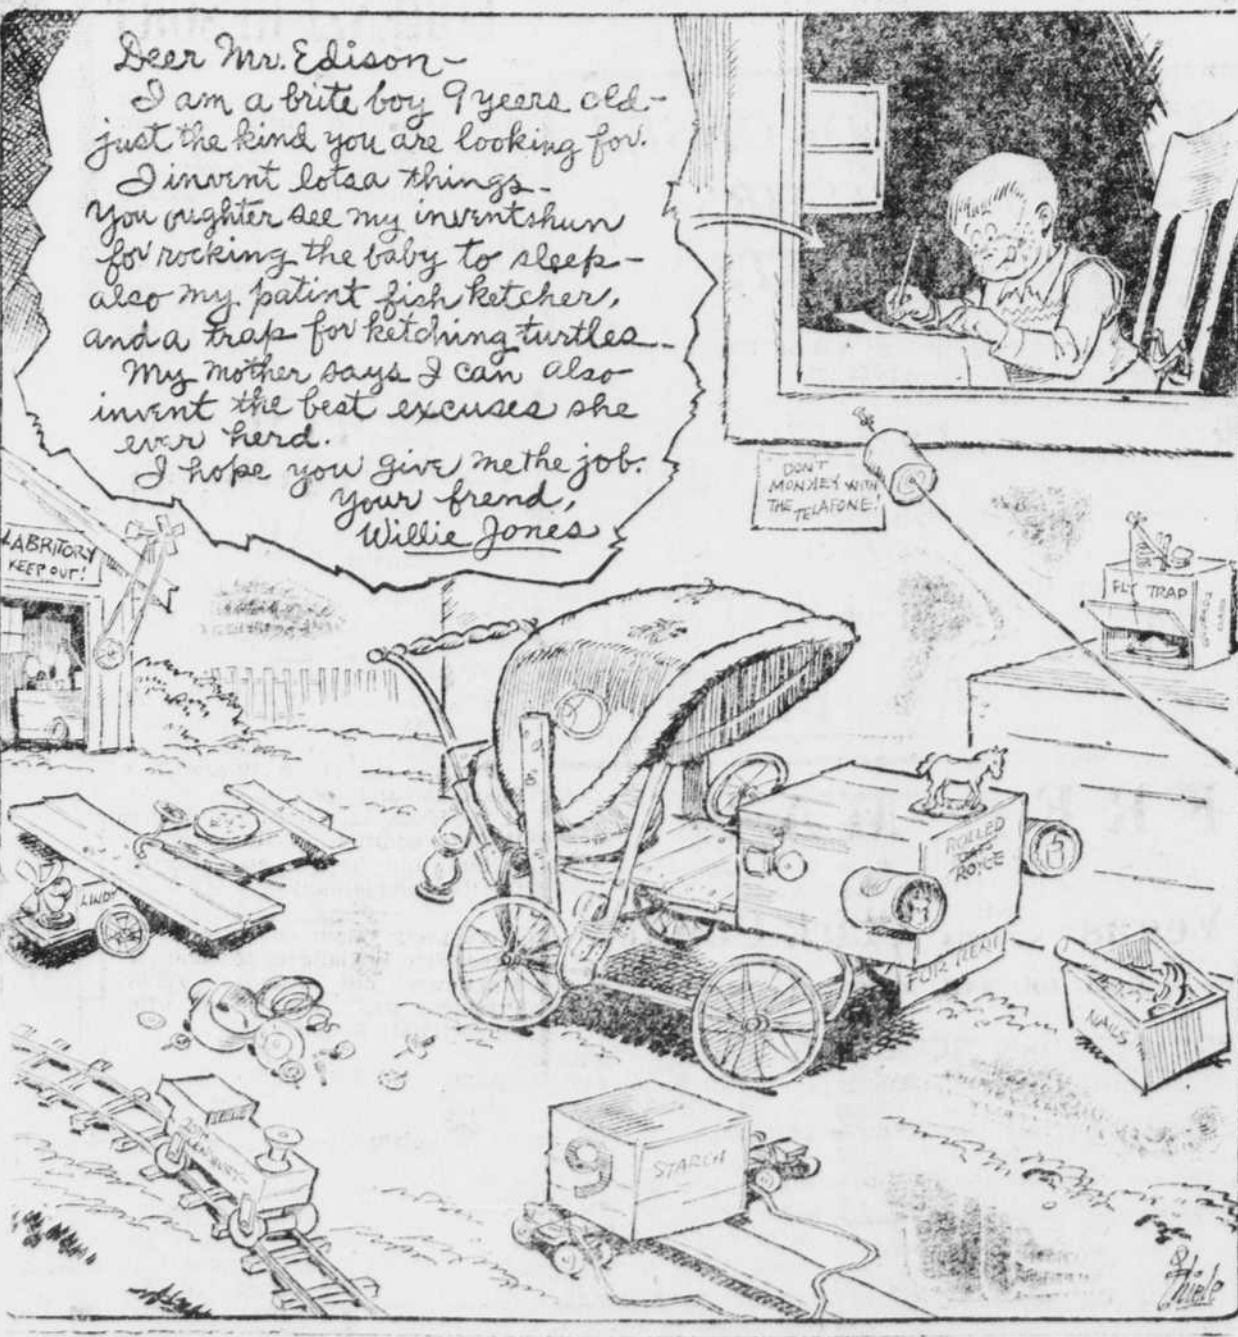 Deer Mr. Edison-
I am a brite boy 9 years old-
just the kind you are looking for.
I invent lotsa things-
You oughter see my inventshun
for rocking the baby to sleep-
also my patint fish ketcher,
and a trap for ketching turtles-
My mother says I can also
invent the best excuses she
ever herd.
I hope you give me the job.
Your frend,
Willie Jones
DON'T
MONKEY WITH
THE TELAFONE!
LABRITORY
KEEP OUT!
FLY TRAP
ROLLED
OATS
ROYCE
LINDY
NAILS
9
STARCH
Thiele